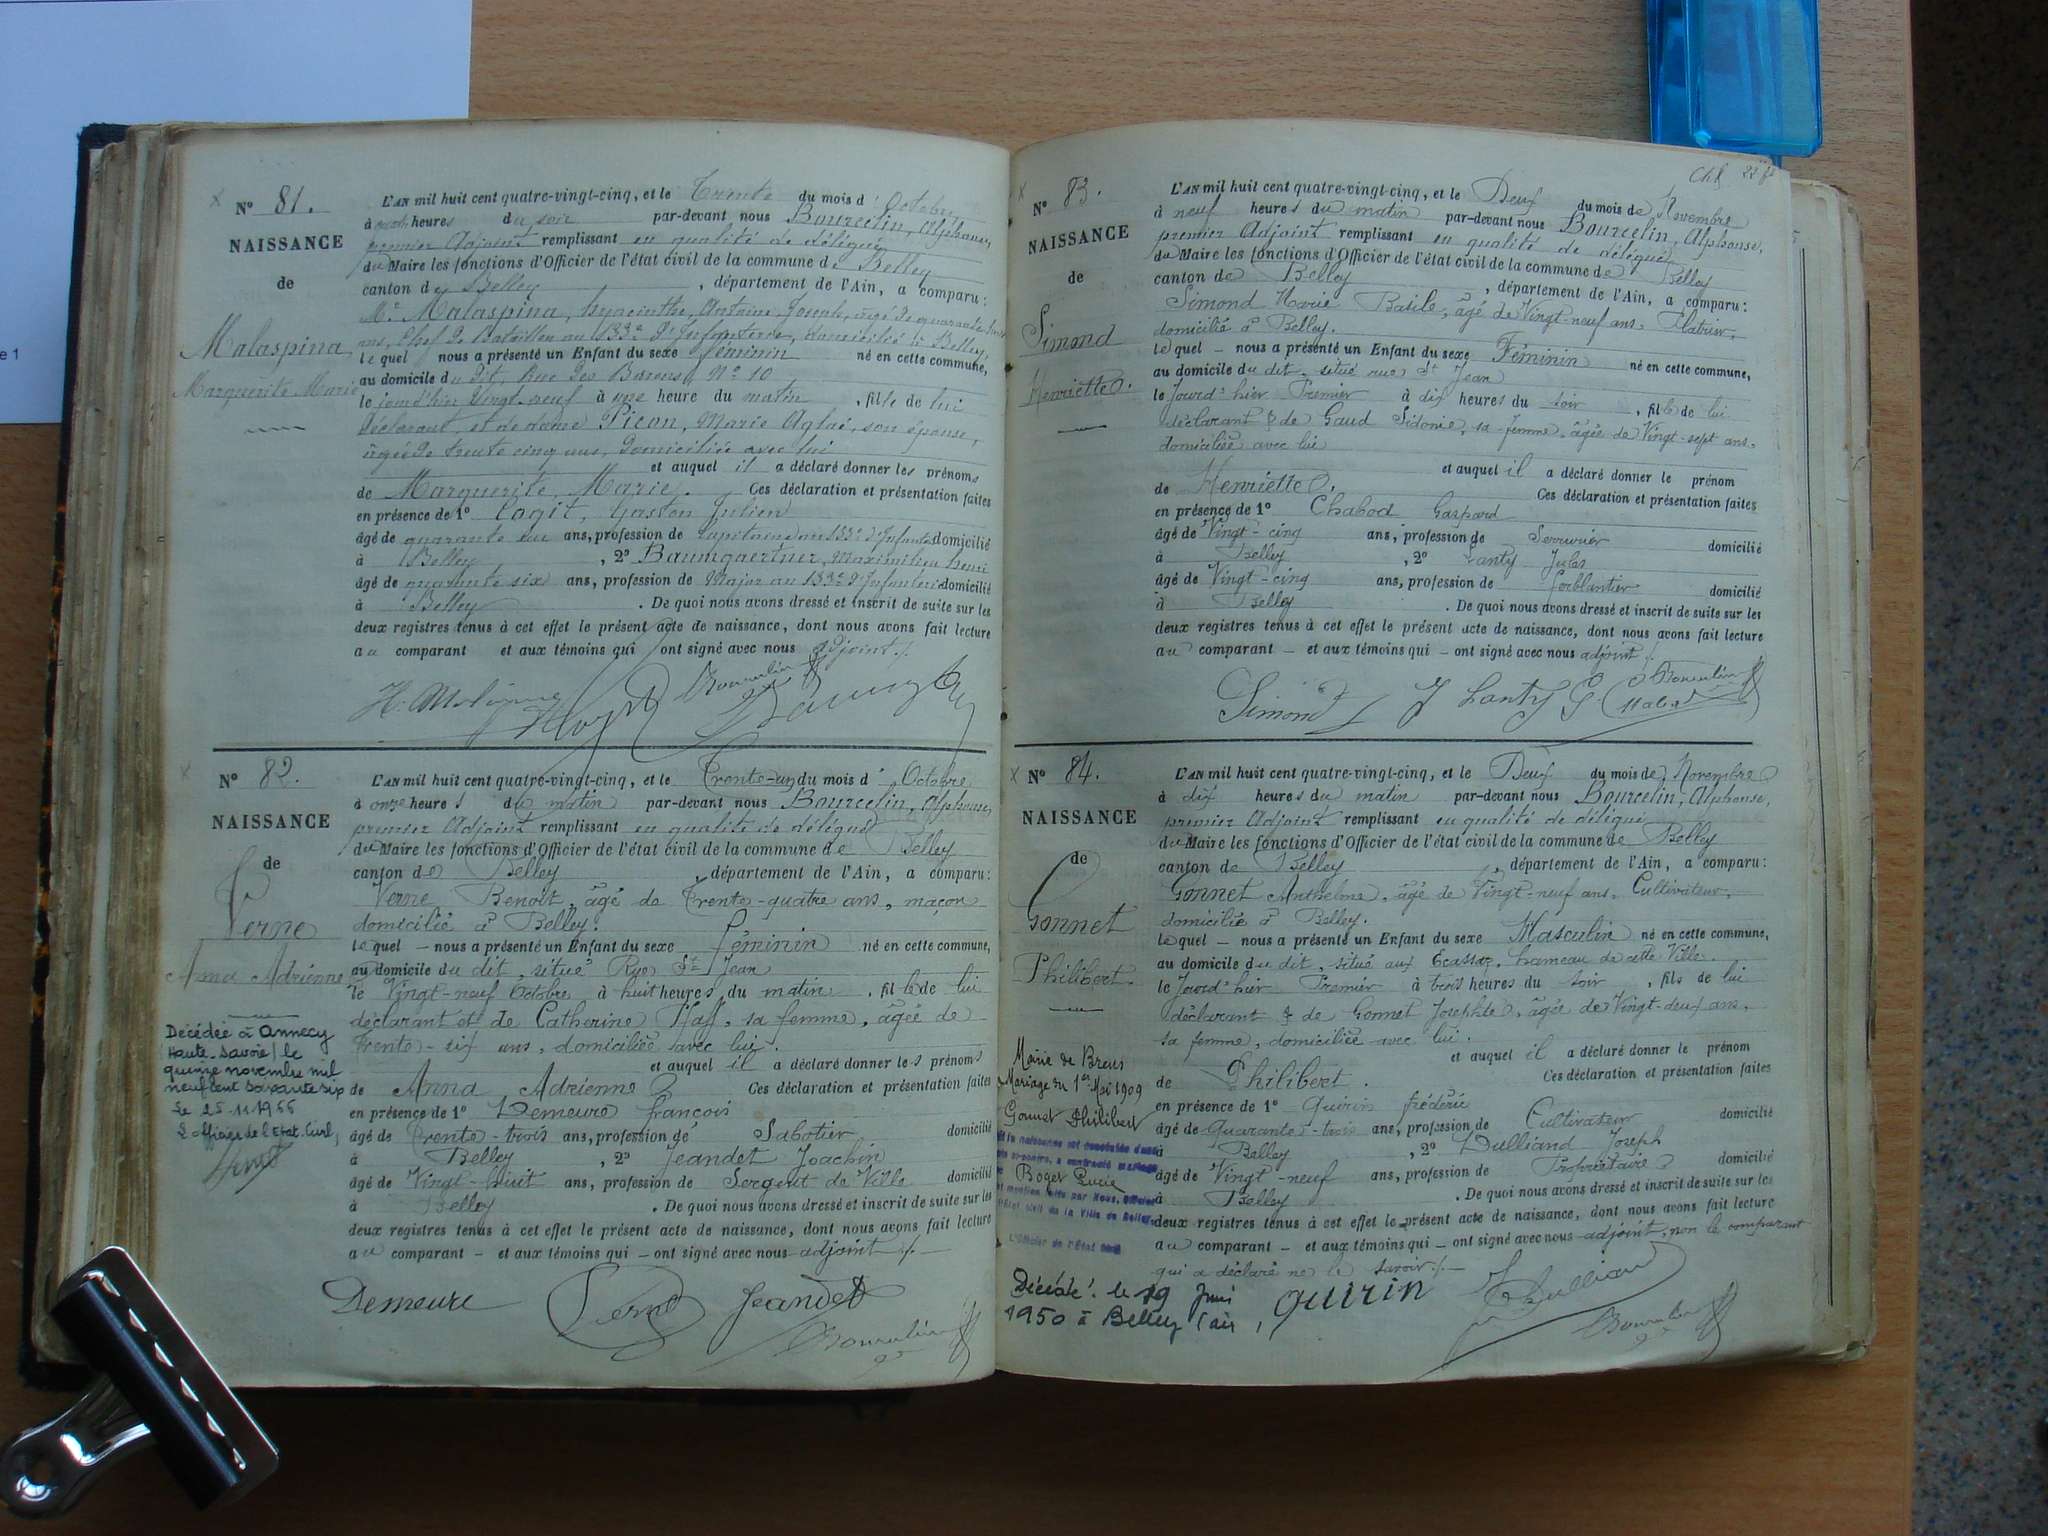 e 1
N° 81.
NAISSANCE
de
Malaspina
Marguerite Marie
L'AN mil huit cent quatre-vingt-cinq, et le Trente du mois d'Octobre
à heures du soir par-devant nous Bourcelin, Alphonse,
premier Adjoint remplissant en qualité de délégué
du Maire les fonctions d'Officier de l'état civil de la commune de Belley
canton de Belley, département de l'Ain, a comparu:
Mr Malaspina, hyacinthe, Antoine Joseph, âgé de quarante
ans, Chef de Bataillon au 133e d'Infanterie, domicilié à Belley,
lequel nous a présenté un Enfant du sexe féminin né en cette commune,
au domicile du dit, Rue des Barons, N° 10
le jourd'hier vingt-neuf à une heure du matin, fille de lui
déclarant, et de dame Picon, Marie Aglaé, son épouse,
âgée de trente cinq ans, domiciliée avec lui
et auquel il a déclaré donner les prénoms
de Marguerite, Marie. Ces déclaration et présentation faites
en présence de 1° Gaston Julien
âgé de quarante ans, profession de Capitaine au 133e d'Infanterie domicilié
à Belley, 2° Baumgaertner, Maximilien henri
âgé de quarante six ans, profession de Major au 133e d'Infanterie domicilié
à Belley. De quoi nous avons dressé et inscrit de suite sur les
deux registres tenus à cet effet le présent acte de naissance, dont nous avons fait lecture
au comparant et aux témoins qui ont signé avec nous adjoint ./.
Bourcelin
N° 82.
NAISSANCE
de
Verne
Anna Adrienne
Décédée à Annecy
(Haute-Savoie) le
quinze novembre mil
neuf cent soixante six
Le 25-11-1966
L'officier de l'Etat-Civil,
L'AN mil huit cent quatre-vingt-cinq, et le Trente-un du mois d'Octobre
à onze heures du matin par-devant nous Bourcelin, Alphonse,
premier Adjoint remplissant en qualité de délégué
du Maire les fonctions d'Officier de l'état civil de la commune de Belley
canton de Belley, département de l'Ain, a comparu:
Verne Benoît, âgé de Trente-quatre ans, maçon
domicilié à Belley.
lequel – nous a présenté un Enfant du sexe Féminin né en cette commune,
au domicile du dit, situé Rue St Jean
le Vingt-neuf Octobre à huit heures du matin, fille de lui
déclarant et de Catherine Pfaff, sa femme, âgée de
Trente-six ans, domiciliée avec lui.
et auquel il a déclaré donner les prénoms
de Anna Adrienne Ces déclaration et présentation faites
en présence de 1° Demeure François
âgé de Trente-trois ans, profession de Sabotier domicilié
à Belley, 2° Jeandet Joachin
âgé de Vingt-huit ans, profession de Sergent de Ville domicilié
à Belley. De quoi nous avons dressé et inscrit de suite sur les
deux registres tenus à cet effet le présent acte de naissance, dont nous avons fait lecture
au comparant – et aux témoins qui – ont signé avec nous adjoint ./.
Demeure Verne Jeandet
Bourcelin
Ch8
N° 83.
NAISSANCE
de
Simond
Henriette.
L'AN mil huit cent quatre-vingt-cinq, et le Deux du mois de Novembre
à neuf heures du matin par-devant nous Bourcelin, Alphonse,
premier Adjoint remplissant en qualité de délégué
du Maire les fonctions d'Officier de l'état civil de la commune de Belley
canton de Belley, département de l'Ain, a comparu:
Simond Marie Basile, âgé de Vingt-neuf ans, Platrier,
domicilié à Belley.
lequel – nous a présenté un Enfant du sexe Féminin né en cette commune,
au domicile du dit, situé rue St Jean
le Jourd'hier Premier à dix heures du soir, fille de lui
déclarant & de Gaud Sidonie, sa femme, âgée de Vingt-sept ans,
domiciliée avec lui
et auquel il a déclaré donner le prénom
de Henriette. Ces déclaration et présentation faites
en présence de 1° Chabod Gaspard
âgé de Vingt-cinq ans, profession de Serrurier domicilié
à Belley, 2° Lanty Jules
âgé de Vingt-cinq ans, profession de Ferblantier domicilié
à Belley. De quoi nous avons dressé et inscrit de suite sur les
deux registres tenus à cet effet le présent acte de naissance, dont nous avons fait lecture
au comparant – et aux témoins qui – ont signé avec nous adjoint ./.
Simond J Lanty G Chabod Bourcelin
N° 84.
NAISSANCE
de
Gonnet
Philibert.
Mairie de Brens
Mariage du 1er Mai 1909
Gonnet Philibert
dont la naissance est constatée dans
l'acte ci-contre, a contracté mariage
Boget Lucie
et mention faite par Nous, Officier
de l'état civil de la Ville de Belley
L'Officier de l'État Civil
Décédé le 19 Juin
1950 à Belley (Ain)
L'AN mil huit cent quatre-vingt-cinq, et le Deux du mois de Novembre
à dix heures du matin par-devant nous Bourcelin, Alphonse,
premier Adjoint remplissant en qualité de délégué
du Maire les fonctions d'Officier de l'état civil de la commune de Belley
canton de Belley, département de l'Ain, a comparu:
Gonnet Anthelme, âgé de Vingt-neuf ans, Cultivateur,
domicilié à Belley.
lequel – nous a présenté un Enfant du sexe Masculin né en cette commune,
au domicile du dit, situé aux Ecassaz, hameau de cette Ville.
le Jourd'hier Premier à trois heures du soir, fils de lui
déclarant & de Gonnet Josephte, âgée de Vingt-deux ans,
sa femme, domiciliée avec lui.
et auquel il a déclaré donner le prénom
de Philibert. Ces déclaration et présentation faites
en présence de 1° Quirin Frédéric
âgé de Quarante-trois ans, profession de Cultivateur domicilié
à Belley, 2° Dulliand Joseph
âgé de Vingt-neuf ans, profession de Propriétaire domicilié
à Belley. De quoi nous avons dressé et inscrit de suite sur les
deux registres tenus à cet effet le présent acte de naissance, dont nous avons fait lecture
au comparant – et aux témoins qui – ont signé avec nous adjoint, non le comparant
qui a déclaré ne le savoir ./.
Quirin J Dulliand
Bourcelin